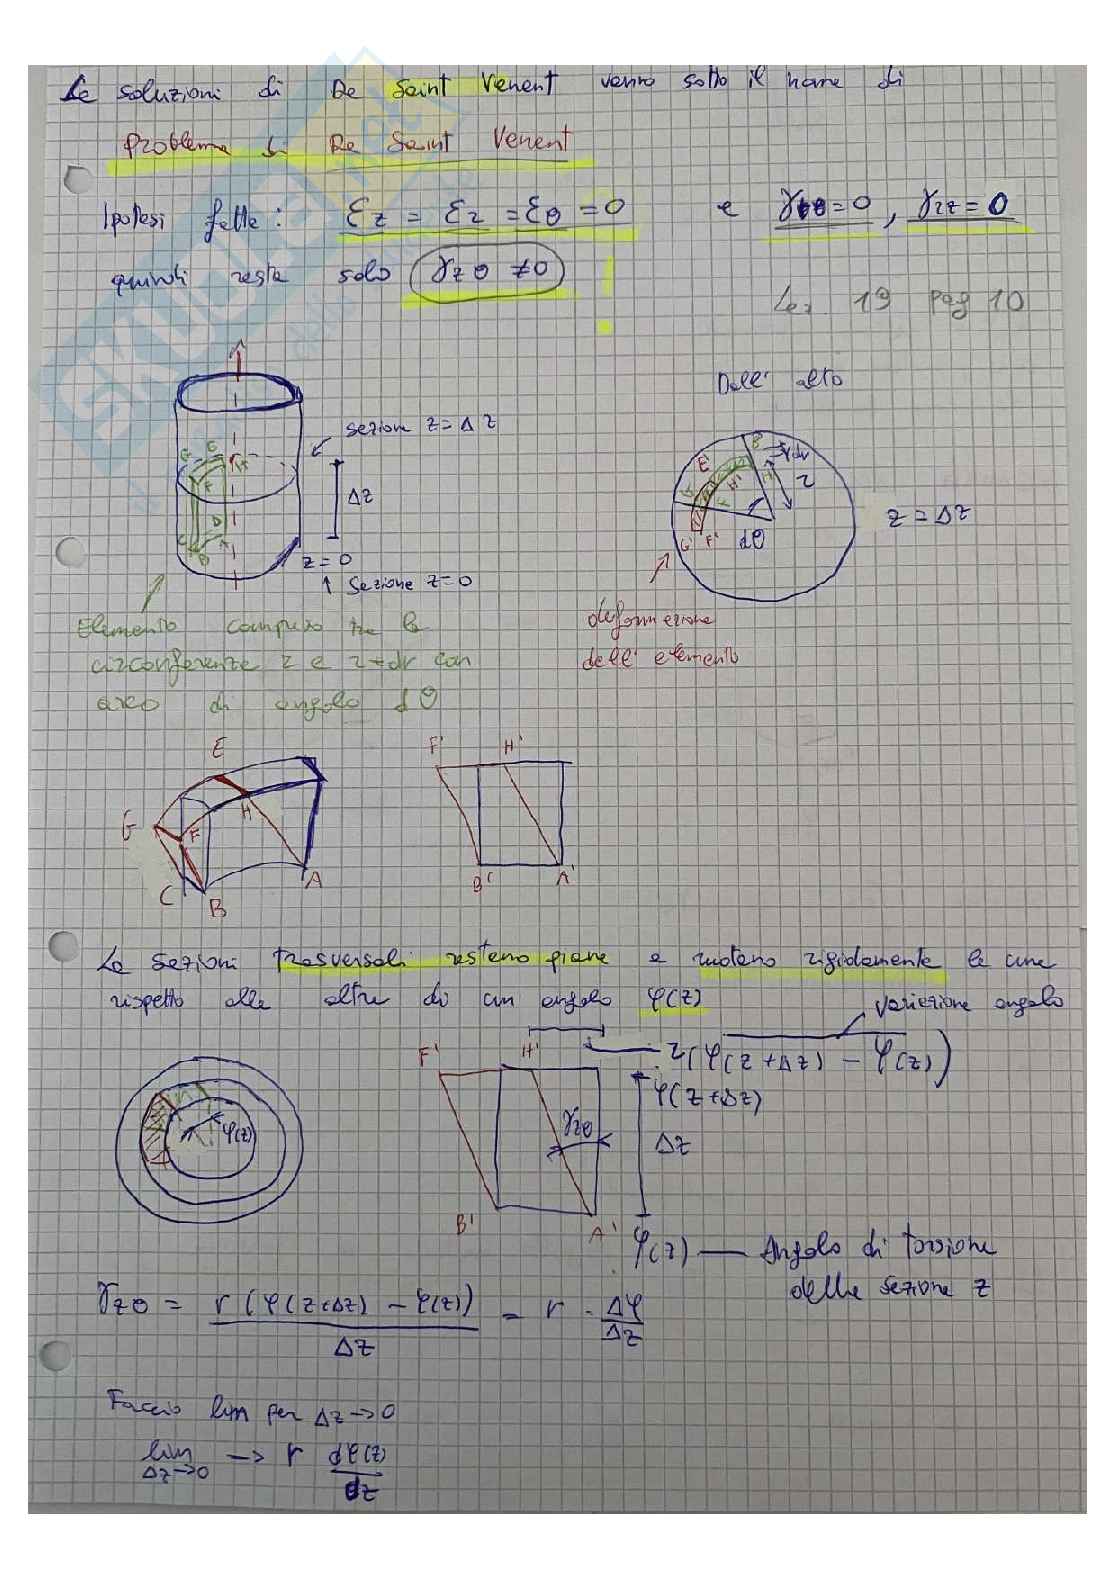 Le soluzioni di De Saint Venent venno sotto il nome di
Problema di De Saint Venent
Ipotesi fatte : εz = εr = εθ = 0 e γrθ = 0 , γrz = 0
quindi resta solo γzθ ≠ 0 !
Lez 19 pag 10
Dall' alto
sezione z = Δz
Δz
z = 0
↑ Sezione z = 0
E
G
H
F
D
C
A
B
E'
B
dr
r
H'
G'
F'
dθ
z = Δz
Elemento compreso tra le
circonferenze r e r+dr con
arco di angolo dθ
deformazione
dell' elemento
E
G
F
H
C
B
A
F' H'
B' A'
Le sezioni trasversali restano piane e ruotano rigidamente le une
rispetto alle altre di un angolo φ(z)
variazione angolo
F' H' r(φ(z+Δz) - φ(z))
φ(z+Δz)
φ(z)
γzθ
Δz
B' A'
φ(z) — Angolo di torsione
della sezione z
γzθ = r (φ(z+Δz) - φ(z)) / Δz = r · Δφ/Δz
Faccio lim per Δz→0
lim Δz→0 → r dφ(z)/dz